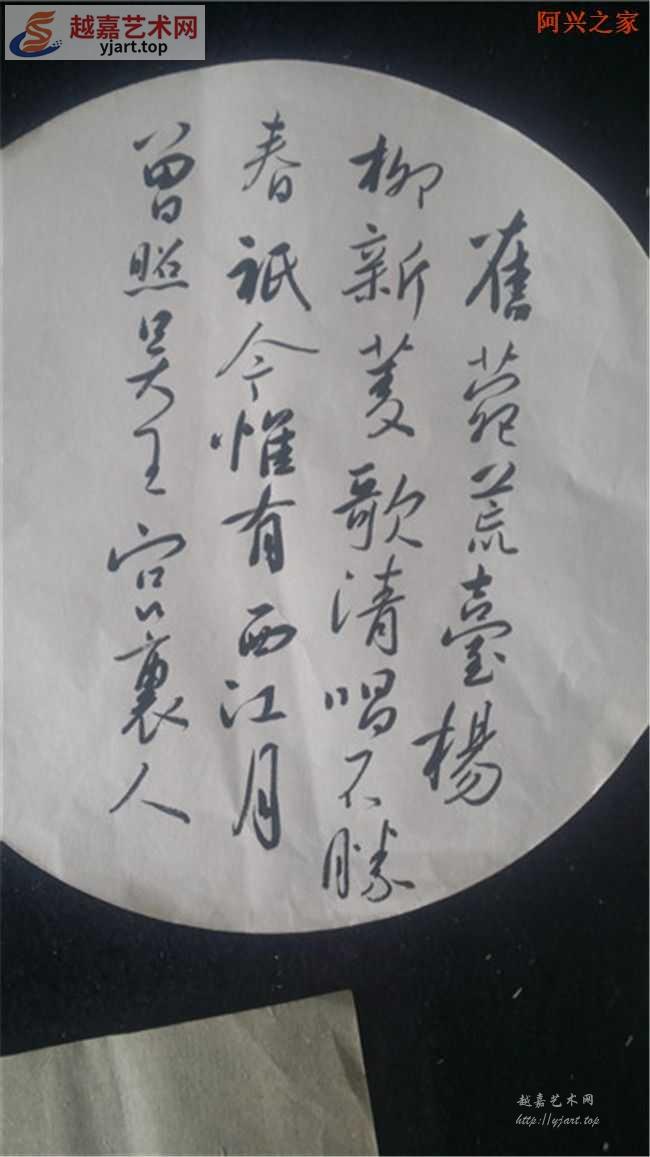 越嘉艺术网
yjart.top
阿兴之家
舊苑荒臺楊
柳新菱歌清唱不勝
春祇今惟有西江月
曾照吴王宫裏人
越嘉艺术网
http://yjart.top